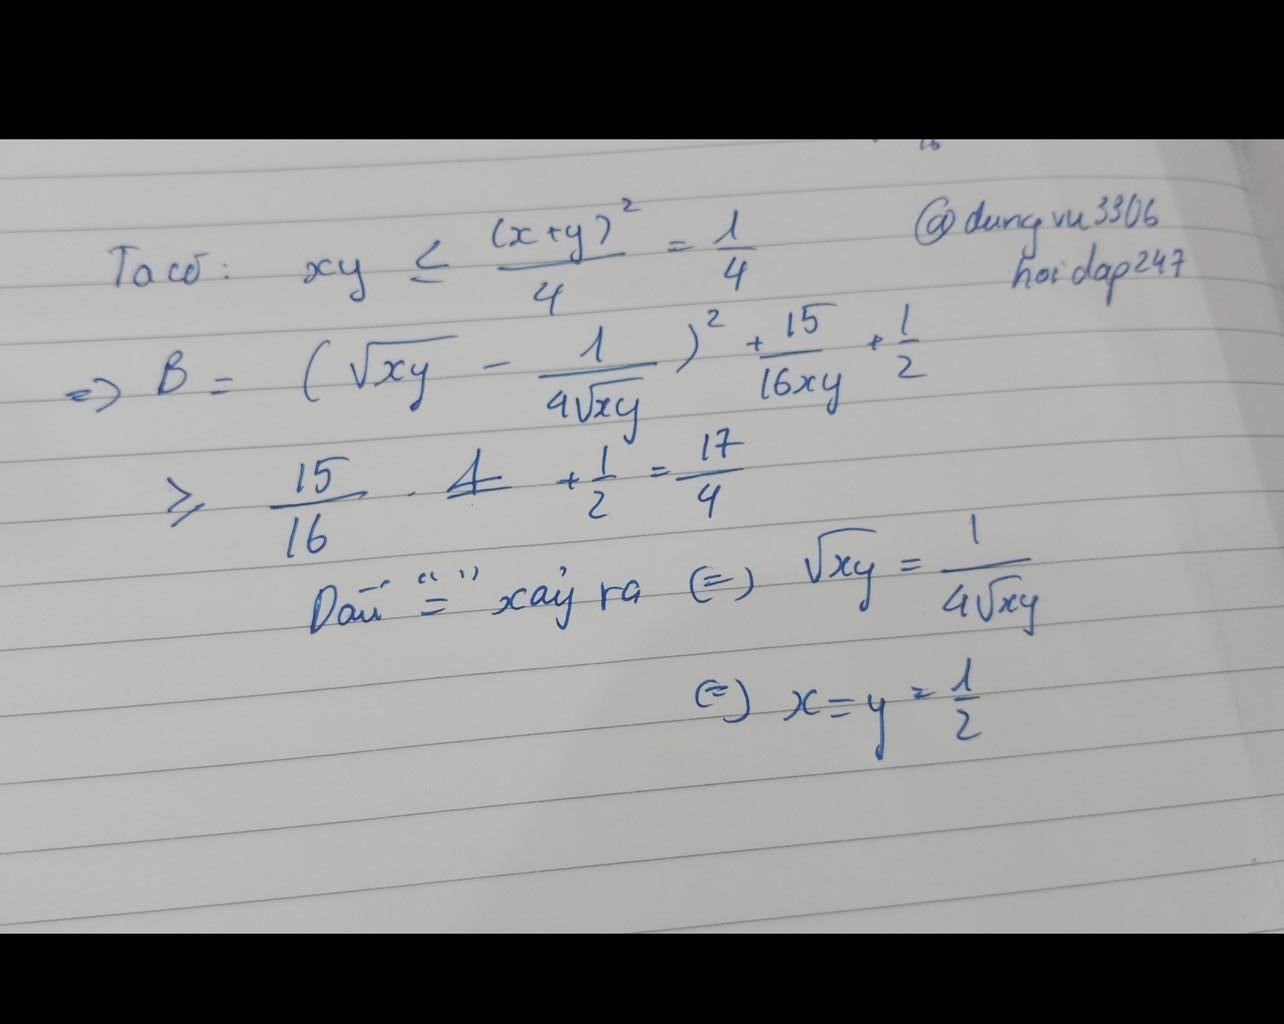 Ta có: xy ≤ (x+y)²/4 = 1/4
@dungvu3306
hoidap247
=> B = (√xy - 1/(4√xy))² + 15/(16xy) + 1/2
≥ 15/16 . 4 + 1/2 = 17/4
Dấu "=" xảy ra (=) √xy = 1/(4√xy)
(=) x = y = 1/2